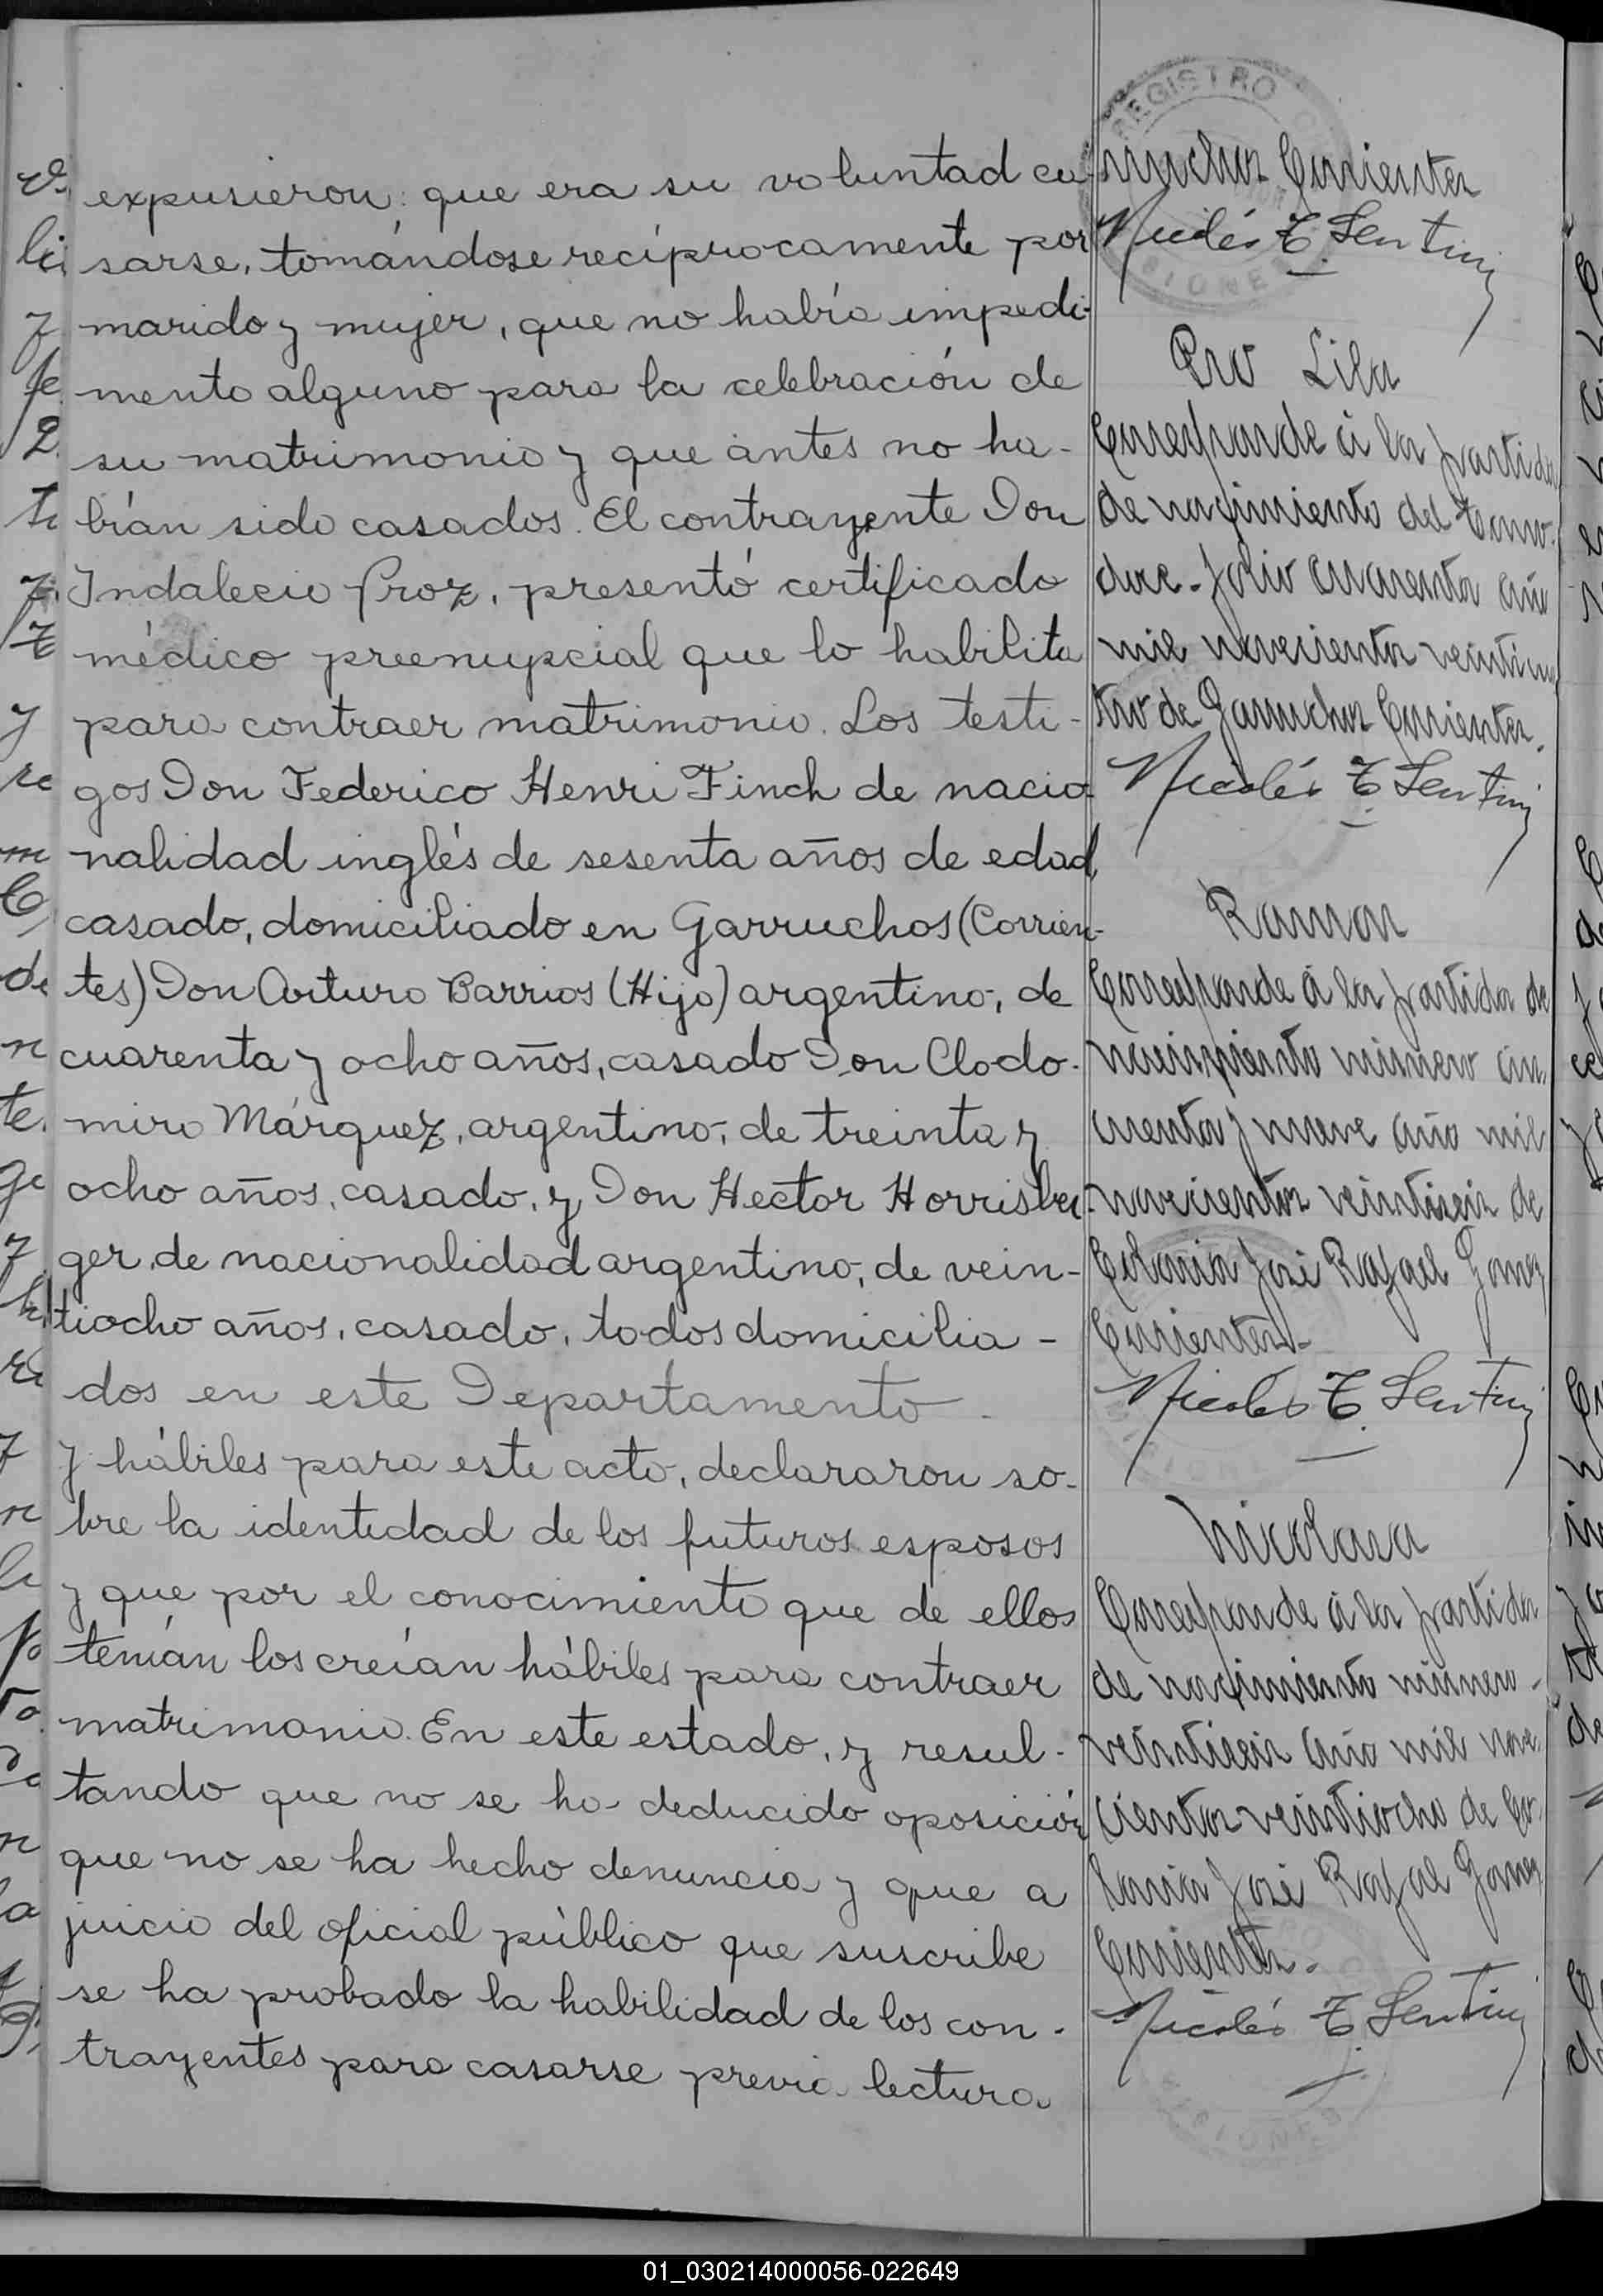 expusieron: que era su voluntad ca-
sarse, tomándose recíprocamente por
marido y mujer, que no había impedi-
mento alguno para la celebración de
su matrimonio y que antes no ha-
bían sido casados. El contrayente Don
Indalecio Proz, presentó certificado
médico preenupcial que lo habilita
para contraer matrimonio. Los testi-
gos Don Federico Henri Finch de nacio-
nalidad inglés de sesenta años de edad,
casado, domiciliado en Garruchos (Corrien-
tes) Don Arturo Barrios (Hijo) argentino, de
cuarenta y ocho años, casado Don Clodo-
miro Márquez, argentino, de treinta y
ocho años, casado, y Don Hector Horrisber-
ger de nacionalidad argentino, de vein-
tiocho años, casado, todos domicilia-
dos en este Departamento.
y hábiles para este acto, declararon so-
bre la identidad de los futuros esposos
y que por el conocimiento que de ellos
tenían los creían hábiles para contraer
matrimonio. En este estado, y resul-
tando que no se ha deducido oposición
que no se ha hecho denuncia y que a
juicio del oficial público que suscribe
se ha probado la habilidad de los con-
trayentes para casarse previa lectura
REGISTRO
rruchos Corrientes
Nicolás T. Sentini
MISIONES
Pro Lila
Corresponde á la partida
de nacimiento del tomo
doce - folio cuarenta año
mil novecientos veinticua
tro de Garruchos Corrientes.
Nicolás T. Sentini
Ramon
Corresponde á la partida de
nacimiento número cin
cuenta y nueve año mil
novecientos veintiseis de
Colonia José Rafael Gomez
Corrientes.-
Nicolás T. Sentini
Nicolasa
Corresponde á la partida
de nacimiento número -
veintiseis año mil nove
cientos veintiocho de Co-
lonia José Rafael Gomez
Corrientes.
Nicolás T. Sentini
MISIONES
01_030214000056-022649